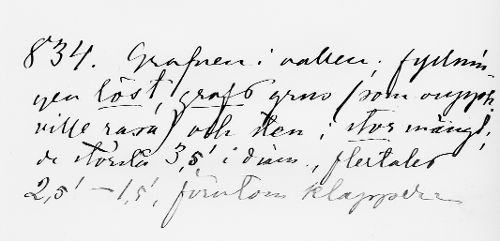 834. Grafven i vallen; fyllnin-
gen löst, groft grus (som oupph.
ville rasa) och sten i stor mängd,
de största 3,5' i diam., flertalet
2,5' – 1,5', förutom klapper